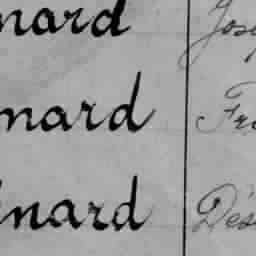 nard Jos
nard Fr
nard Dés